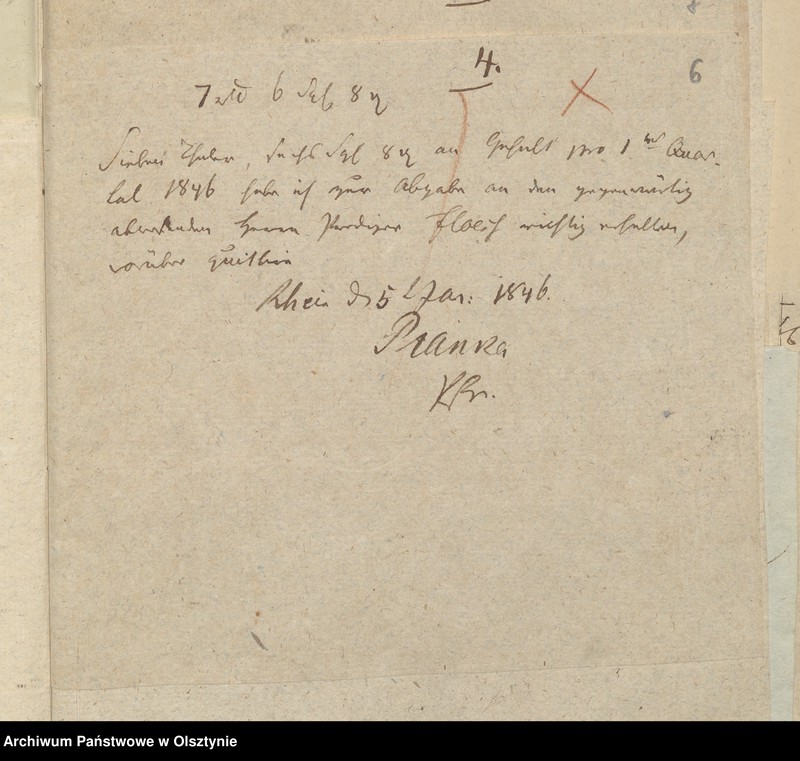 4.
6
7 rtl 6 Sgl 8 d
Sieben Thaler, sechs Sgl 8 d an Gehalt pro 1 tes Quar-
tal 1846 habe ich zur Abgabe an den gegenwärtig
abwesenden Herrn Prediger richtig erhalten,
worüber quittire
Rhein d 5 t Jan: 1846.
Pianka
Pfr.
Archiwum Państwowe w Olsztynie